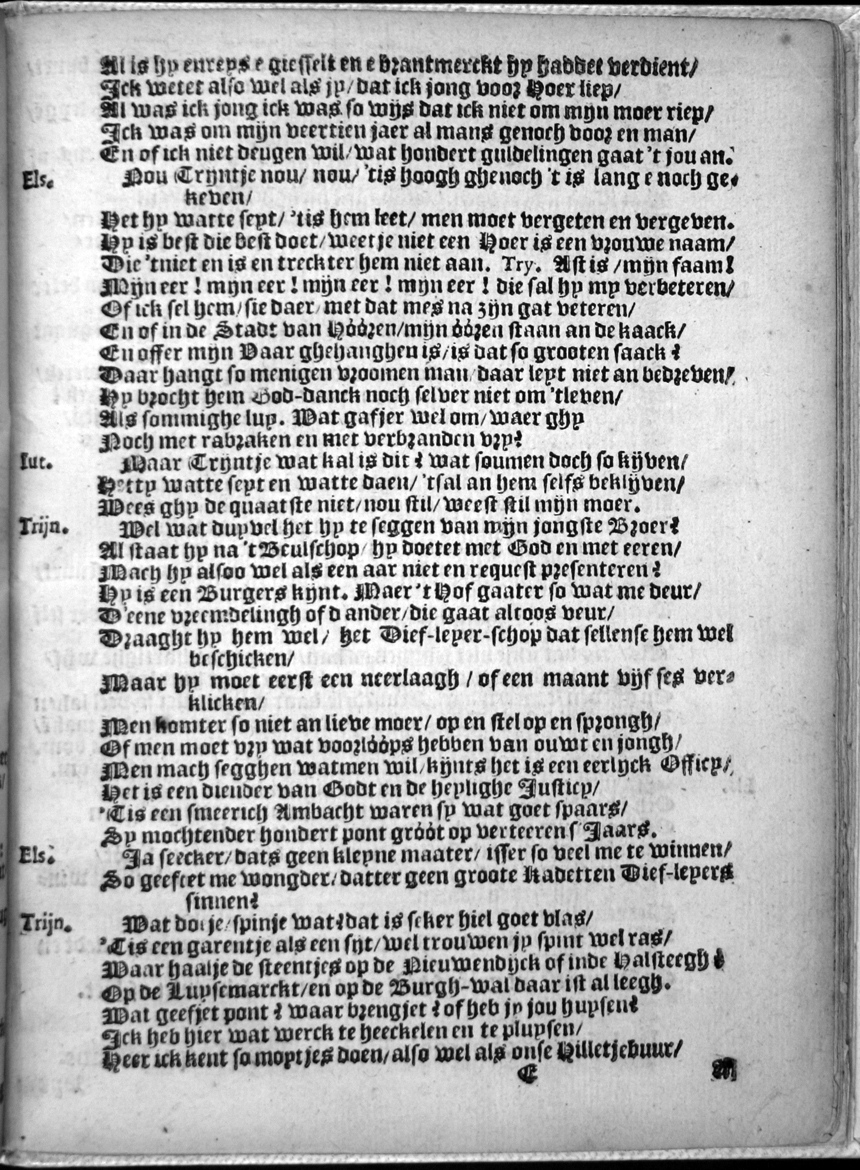 Al is hy enreys e giesselt en e brantmerckt hy haddet verdient/
Ick wetet also wel als jy/ dat ick jong voor Hoer liep/
Al was ick jong ick was so wijs dat ick niet om mijn moer riep/
Ick was om mijn veertien jaer al mans genoch voor en man/
En of ick niet deugen wil/ wat hondert guldelingen gaat 't jou an.
Els. Nou Tryntje nou/ nou/ 'tis hoogh ghenoch 't is lang e noch ge-
keven/
Het hy watte seyt/ 'tis hem leet/ men moet vergeten en vergeven.
Hy is best die best doet/ weet je niet een Hoer is een vrouwe naam/
Die 'tniet en is en treckter hem niet aan. Try. Ast is /mijn faam!
Mijn eer ! mijn eer ! mijn eer ! mijn eer ! die sal hy my verbeteren/
Of ick sel hem/ sie daer/ met dat mes na zijn gat veteren/
En of in de Stadt van Hóóren/mijn óóren staan an de kaack/
En offer mijn Vaar ghehanghen is/ is dat so grooten saack ?
Daar hangt so menigen vroomen man/ daar leyt niet an bedreven/
Hy brocht hem God-danck noch selver niet om 'tleven/
Als sommighe luy. Wat gafjer wel om/ waer ghy
Noch met rabraken en met verbranden vry?
Iut. Maar Tryntje wat kal is dit ? wat soumen doch so kijven/
Hetty watte seyt en watte daen/ 'tsal an hem selfs beklijven/
Wees ghy de quaatste niet/ nou stil/ weest stil mijn moer.
Trijn. Wel wat duyvel het hy te seggen van mijn jongste Broer?
Al staat hy na 't Beulschop/ hy doetet met God en met eeren/
Mach hy alsoo wel als een aar niet en request presenteren ?
Hy is een Burgers kijnt. Maer 't Hof gaater so wat me deur/
D'eene vreemdelingh of d ander/ die gaat altoos veur/
Draaght hy hem wel/ het Dief-leyer-schop dat sellense hem wel
beschicken/
Maar hy moet eerst een neerlaagh / of een maant vijf ses ver-
klicken/
Men komter so niet an lieve moer/ op en stel op en sprongh/
Of men moet vry wat voorlóóps hebben van ouwt en jongh/
Men mach segghen watmen wil/ kijnts het is een eerlyck Officy/
Het is een diender van Godt en de heylighe Justicy/
'Tis een smeerich Ambacht waren sy wat goet spaars/
Sy mochtender hondert pont gróót op verteeren s' Jaars.
Els. Ja seecker/ dats geen kleyne maater/ isser so veel me te winnen/
So geefcet me wongder/ datter geen groote Kadetten Dief-leyers
sinnen?
Trijn. Wat doi je/ spinje wat? dat is seker hiel goet vlas/
'Tis een garentje als een syt/ wel trouwen jy spint wel ras/
Waar haalje de steentjes op de Nieuwendijck of inde Halsteegh ?
Op de Luysemarckt/ en op de Burgh-wal daar ist al leegh.
Wat geefjet pont ? waar brengjet ? of heb jy jou huysen?
Ick heb hier wat werck te heeckelen en te pluysen/
Heer ick kent so moptjes doen/ also wel als onse Hilletjebuur/
E